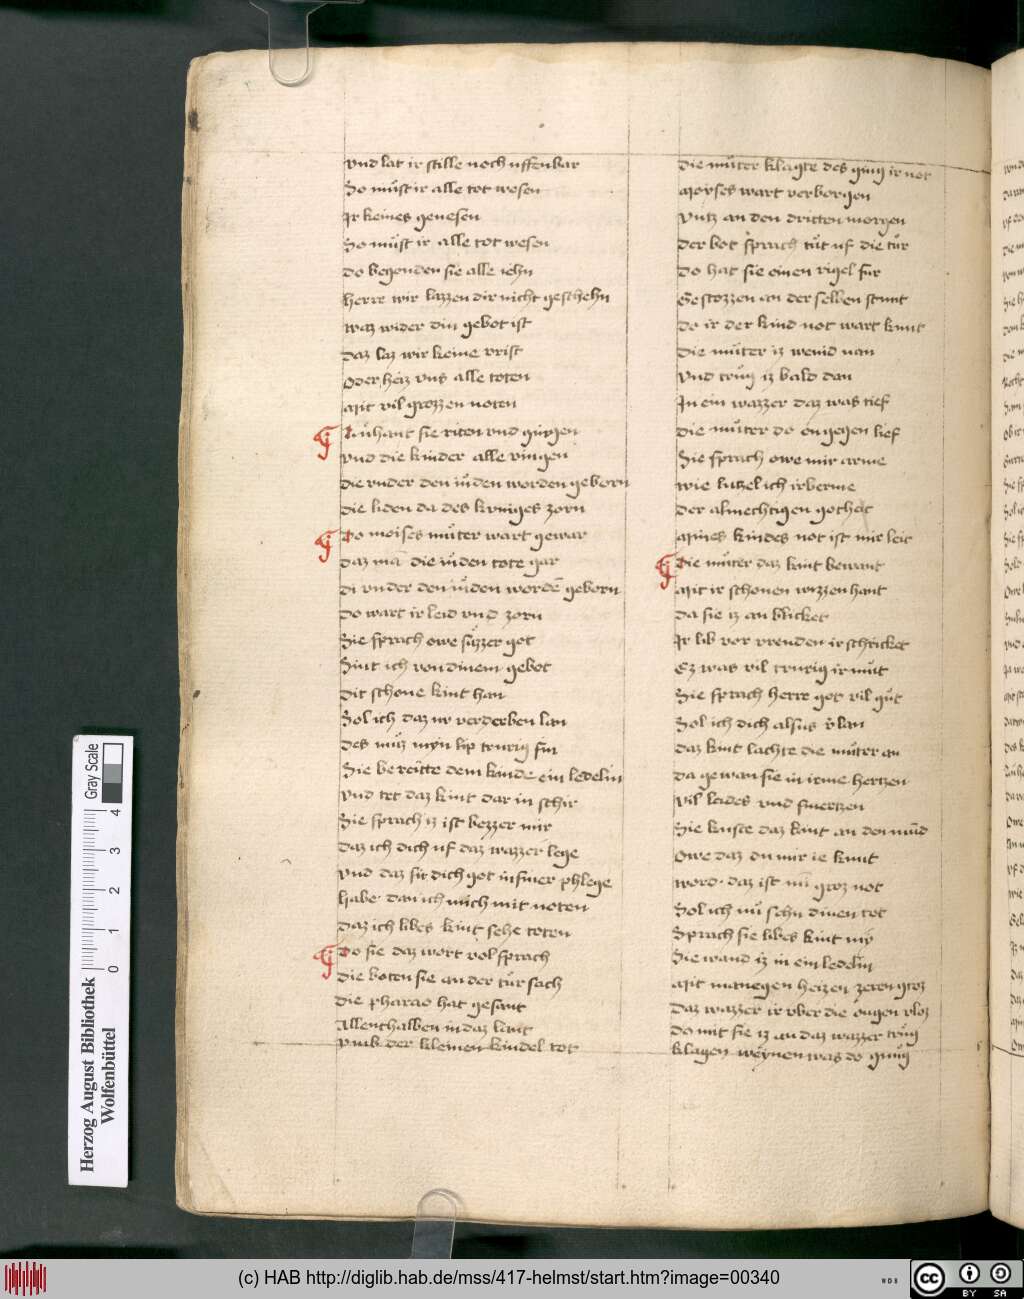 vnd lat ir stille noch uffenbar
So muͤst ir alle tot wesen
Ir keines genesen
So muͤst ir alle tot wesen
do begonden sie alle iehn
herre wir lazzen dir nicht geschehn
waz wider din gebot ist
daz laz wir keine vrist
Oder heiz vns alle toten
Mit vil grozzen noten
Zuͤhant sie riten vnd gingen
vnd die kinder alle vingen
die vnder den iuͤden worden geborn
die liden da des kuniges zorn
Do moises muͤter wart gewar
daz mā die iuͤden tote gar
di vnder den iuͤden wordē geborn
do wart ir leid vnd zorn
Sie sprach owe suͤzzer got
Sint ich von dinem gebot
dit schone kint han
Sol ich daz nv verderben lan
des muͤz myn lip trurig sin
Sie bereitte dem kinde ein ledelin
vnd tet daz kint dar in schir
Sie sprach iz ist bezzer mir
daz ich dich uf daz wazzer lege
vnd daz sit dich got in siner phlege
habe dan ich mich mit noten
daz ich libes kint sehe toten
Do sie daz wort vol sprach
die boten sie an der tuͤr sach
die pharao hat gesant
Allenthalben in daz lant
vmb der kleinen kindel tot
die muͤter klagte des ging ir not
Moyses wart verborgen
vntz an den dritten morgen
der bot sprach tuͤt uf die tuͤr
do hat sie einen rigel fur
Gestozzen an der selben stunt
do ir der kind not wart kunt
die muͤter iz wenid nan
vnd truͤg iz bald dan
In ein wazzer daz was tief
die muͤter do engegen lief
Sie sprach owe mir arme
wie lutzel ich irberme
der almechtigen gotheit
Mines kindes not ist mir leit
Die muͤter daz kint bewant
Mit ir schonen wizzen hant
da sie iz an blicket
Ir lib vor vreuden irschricket
Ez was vil trurig ir muͤt
Sie sprach herre got vil guͤt
Sol ich dich alsus vlan
daz kint lachte die muͤter an
da gewan sie in irme hertzen
vil leides vnd smertzen
Sie kuste daz kint an den mūd
Owe daz du mir ie kunt
word daz ist mī groz not
Sol ich nuͤ sehn dinen tot
Sprach sie libes kint my
Sie wand iz in ein ledelin
Mit manegen heizen zeren groz
daz wazzer ir vber die ougen vloz
do mit sie iz an daz wazzer truͤg
klagen weynen was do gnuͤg
Herzog August Bibliothek
Wolfenbüttel
0 1 2 3 4
Gray Scale
(c) HAB http://diglib.hab.de/mss/417-helmst/start.htm?image=00340
WDB
cc BY SA